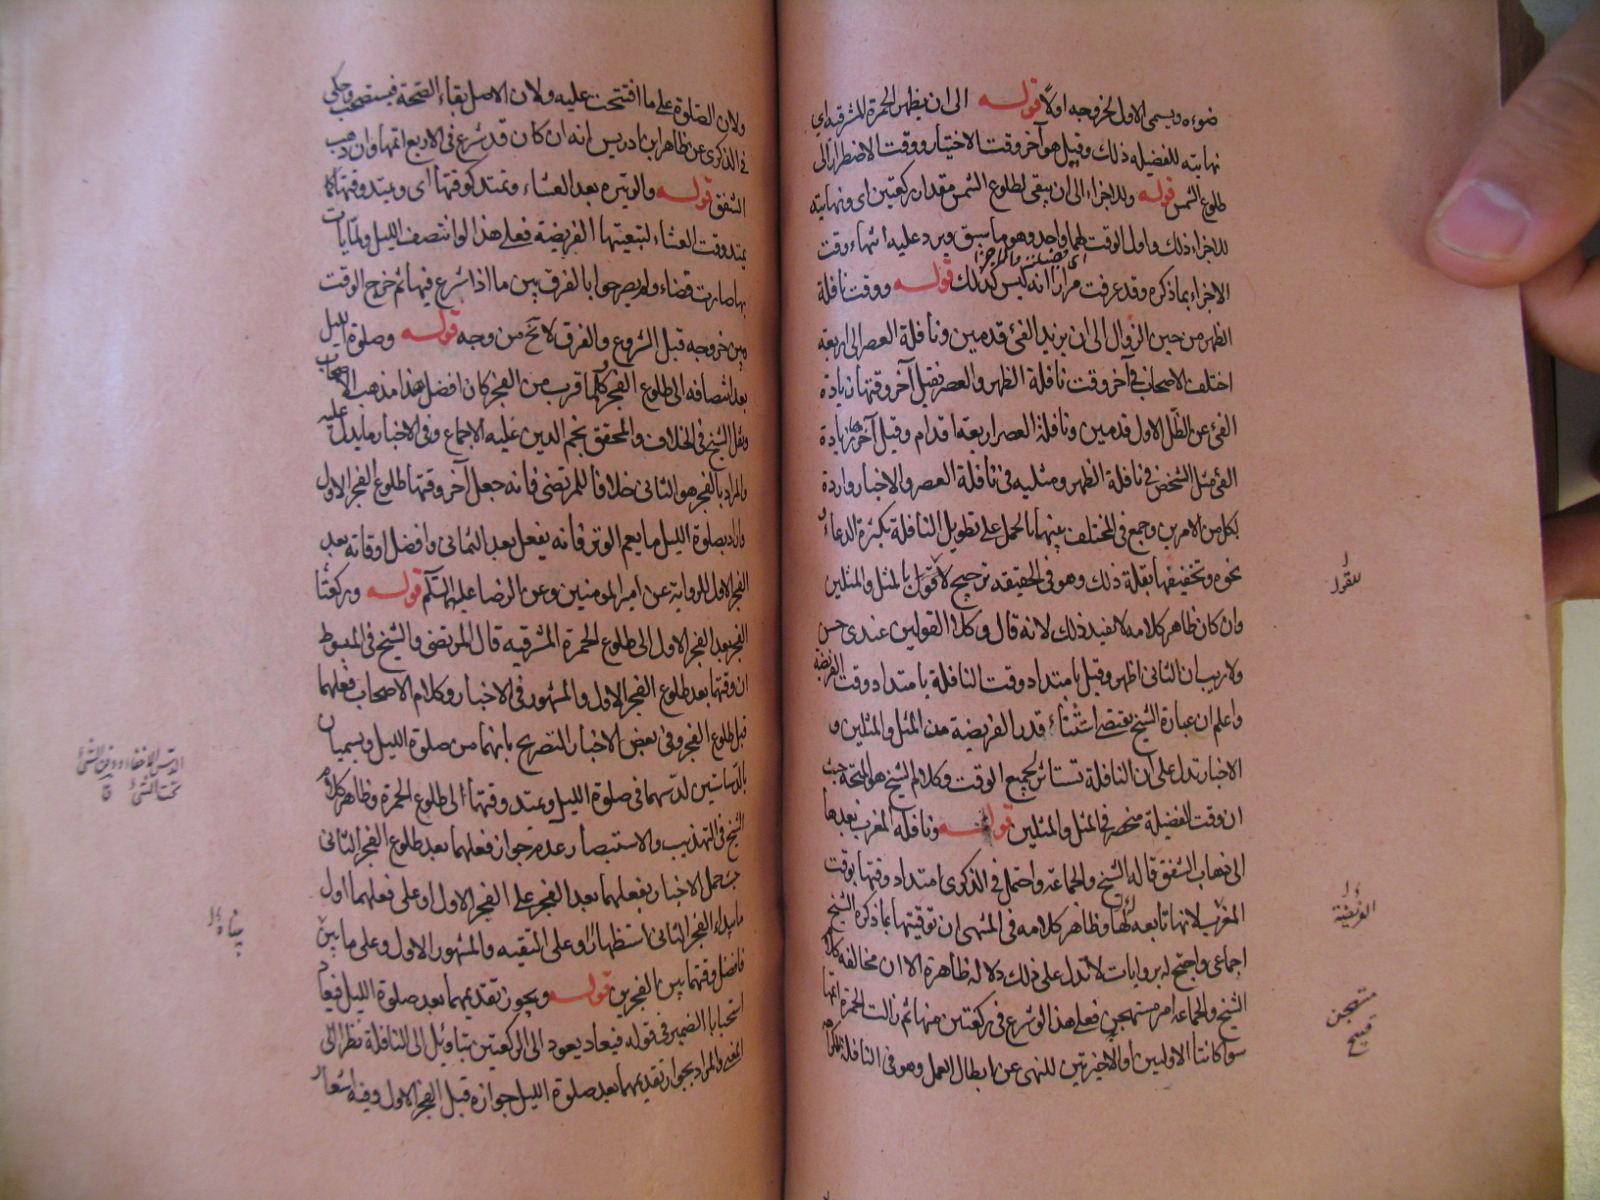 ضوءه ويسمى الاول لخروجه اولا قوله الى ان يظهر الحمرة المشرقيه اى
نهايته للفضيله ذلك وقيل هو آخر وقت الاختيار ووقت الاضطرار الى
طلوع الشمس قوله وللاجزاء الى ان يبقى لطلوع الشمس مقدار ركعتين اى ونهايته
للاجزاء ذلك واول الوقت لهما واحد وهو ما سبق ويرد عليه انتهاء وقت
الاجزاء بما ذكره وقد عرفت مرارا انه ليس كذلك قوله ووقت نافلة
الظهر من حين الزوال الى ان يزيد الفئ قدمين ونافلة العصر الى اربعة
اختلف الاصحاب فى آخر وقت نافلة الظهر والعصر فقيل آخر وقتها زيادة
الفئ عن الظل الاول قدمين ونافلة العصر اربعة اقدام وقيل آخرهما زيادة
الفئ مثل الشخص فى نافلة الظهر ومثليه فى نافلة العصر والاخبار واردة
بكل من الامرين وجمع فى المختلف بينهما بالحمل على تطويل النافلة بكثرة الدعاء و
نحوه وتخفيفها بقلة ذلك وهو فى الحقيقه ترجيح لا قول بالمثل والمثلين
للقول
وان كان ظاهر كلامه لا يفيد ذلك لانه قال وكلا القولين عندى حسن
ولا ريب ان الثانى اظهر وقيل بامتداد وقت النافلة بامتداد وقت الفريضة
واعلم ان عبارة الشيخ يقتضى استثناء قدر الفريضة من المثل والمثلين و
الاخبار تدل على ان النافلة تستاثر بجميع الوقت وكلام الشيخ هو المتجه حيث
ان وقت الفضيلة منحصر فى المثل والمثلين قوله ونافلة المغرب بعدها
الى ذهاب الشفق قاله الشيخ والجماعة واحتمل فى الذكرى امتداد وقتها بوقت
المغرب لانها تابعه لها وظاهر كلامه فى المنتهى ان توقيتها بما ذكره الشيخ
اجماعى واحتج له بروايات لا تدل على ذلك دلاله ظاهرة الا ان مخالفه كلام
الشيخ والجماعه امر مستهجن فعلى هذا لو شرع فى ركعتين منها ثم زالت الحمرة اتمها
مستهجن
قبيح
سوا كانتا الاوليين او الاخيرتين للنهى عن ابطال العمل وهو فى النافلة للكراهة
ولان الصلوة على ما افتتحت عليه ولان الاصل بقاء الصحة فيستصحب وحكى
فى الذكرى عن ظاهر ابن ادريس انه ان كان قد شرع فى الاربع اتمها وان ذهب
الشفق قوله والوتيره بعد العشاء وتمتد كوقتها اى ويمتد وقتها كما
يمتد وقت العشاء لتبعيتها الفريضة فعلى هذا لو انتصف الليل ولما يات
بها صارت قضاء ولم يصرحوا بالفرق بين ما اذا شرع فيها ثم خرج الوقت
وبين خروجه قبل الشروع والفرق لا يخ من وجه قوله وصلوة الليل
بعد انتصافه الى طلوع الفجر وكلما قرب من الفجر كان افضل هذا مذهب الاصحاب
ونقل الشيخ فى الخلاف والمحقق نجم الدين عليه الاجماع وفى الاخبار ما يدل عليه
والمراد بالفجر هو الثانى خلافا للمرتضى فانه جعل آخر وقتها طلوع الفجر الاول
واراد بصلوة الليل ما يعم الوتر فانه يفعل بعد الثمانى وافضل اوقاته بعد
الفجر الاول للرواية عن امير المومنين وعن الرضا عليهما السلم قوله وركعتا
الفجر بعد الفجر الاول الى طلوع الحمرة المشرقيه قال المرتضى والشيخ فى المبسوط
ان وقتها بعد طلوع الفجر الاول والمشهور فى الاخبار وكلام الاصحاب فعلهما
قبل طلوع الفجر وفى بعض الاخبار التصريح بانهما من صلوة الليل ويسميان
بالدساستين لدسهما فى صلوة الليل ويمتد وقتها الى طلوع الحمرة وظاهر كلام
الدس الاخفاء ودفن الشئ
تحت الشئ ق
الشيخ فى التهذيب والاستبصار عدم جواز فعلهما بعد طلوع الفجر الثانى
حيث حمل الاخبار بفعلهما بعد الفجر على الفجر الاول او على فعلهما اول
ما يبداء الفجر الثانى استظهارا وعلى التقيه والمشهور الاول وعلى ما بين
فافضل وقتها بين الفجرين قوله ويجوز تقديمها بعد صلوة الليل فيعاد
استحبابا الضمير فى قوله فيعاد يعود الى الركعتين بتاويل الى النافلة نظرا الى
المعنى والمراد بجواز تقديمها بعد صلوة الليل جوازه قبل الفجر الاول وفيه اشعار